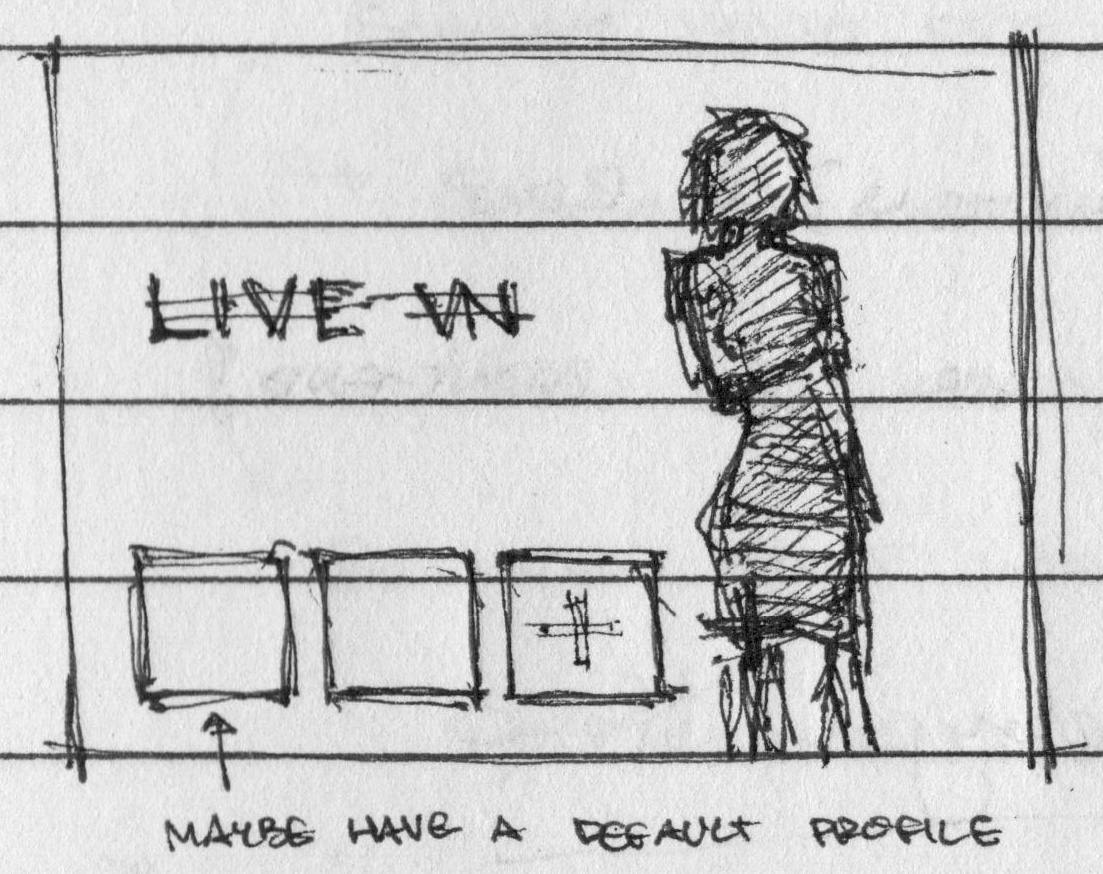 LIVE IN
+
MAYBE HAVE A DEFAULT PROFILE